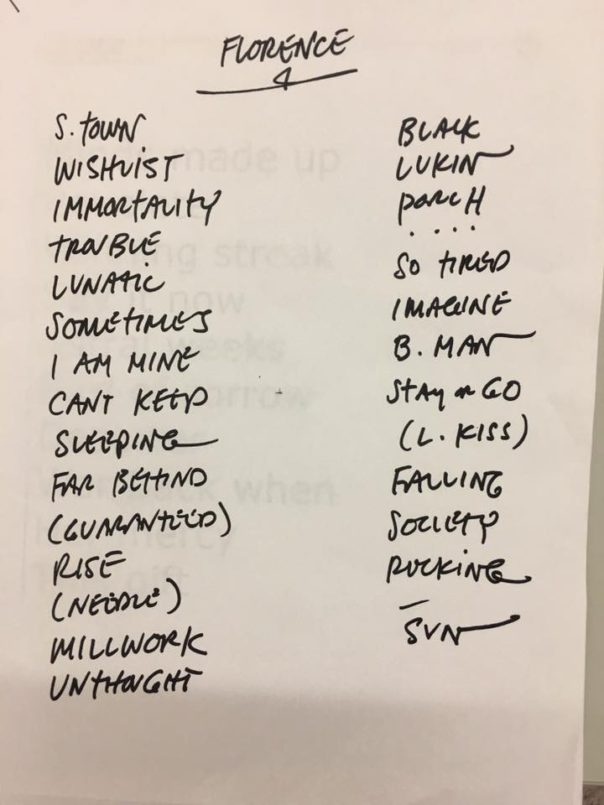 FLORENCE
S. TOWN
WISHLIST
IMMORTALITY
TROUBLE
LUNATIC
SOMETIMES
I AM MINE
CANT KEEP
SLEEPING
FAR BEHIND
(GUARANTEED)
RISE
(NEEDLE)
MILLWORK
UNTHOUGHT
BLACK
LUKIN
PORCH
. . . .
SO TIRED
IMAGINE
B. MAN
STAY or GO
(L. KISS)
FALLING
SOCIETY
ROCKING
SUN
made up
ng streak
it now
weeks
orrow
when